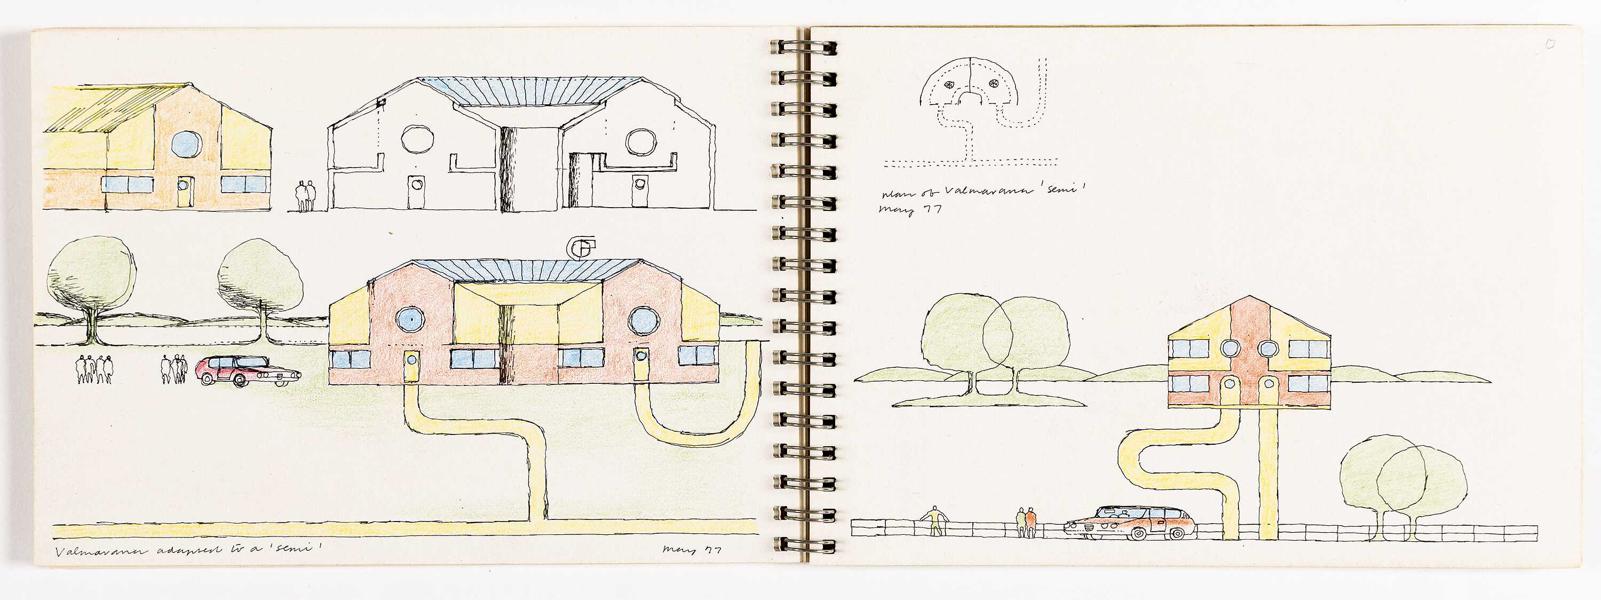 Valmarana adapted to a 'semi'
May 77
plan of Valmarana 'semi'
May 77